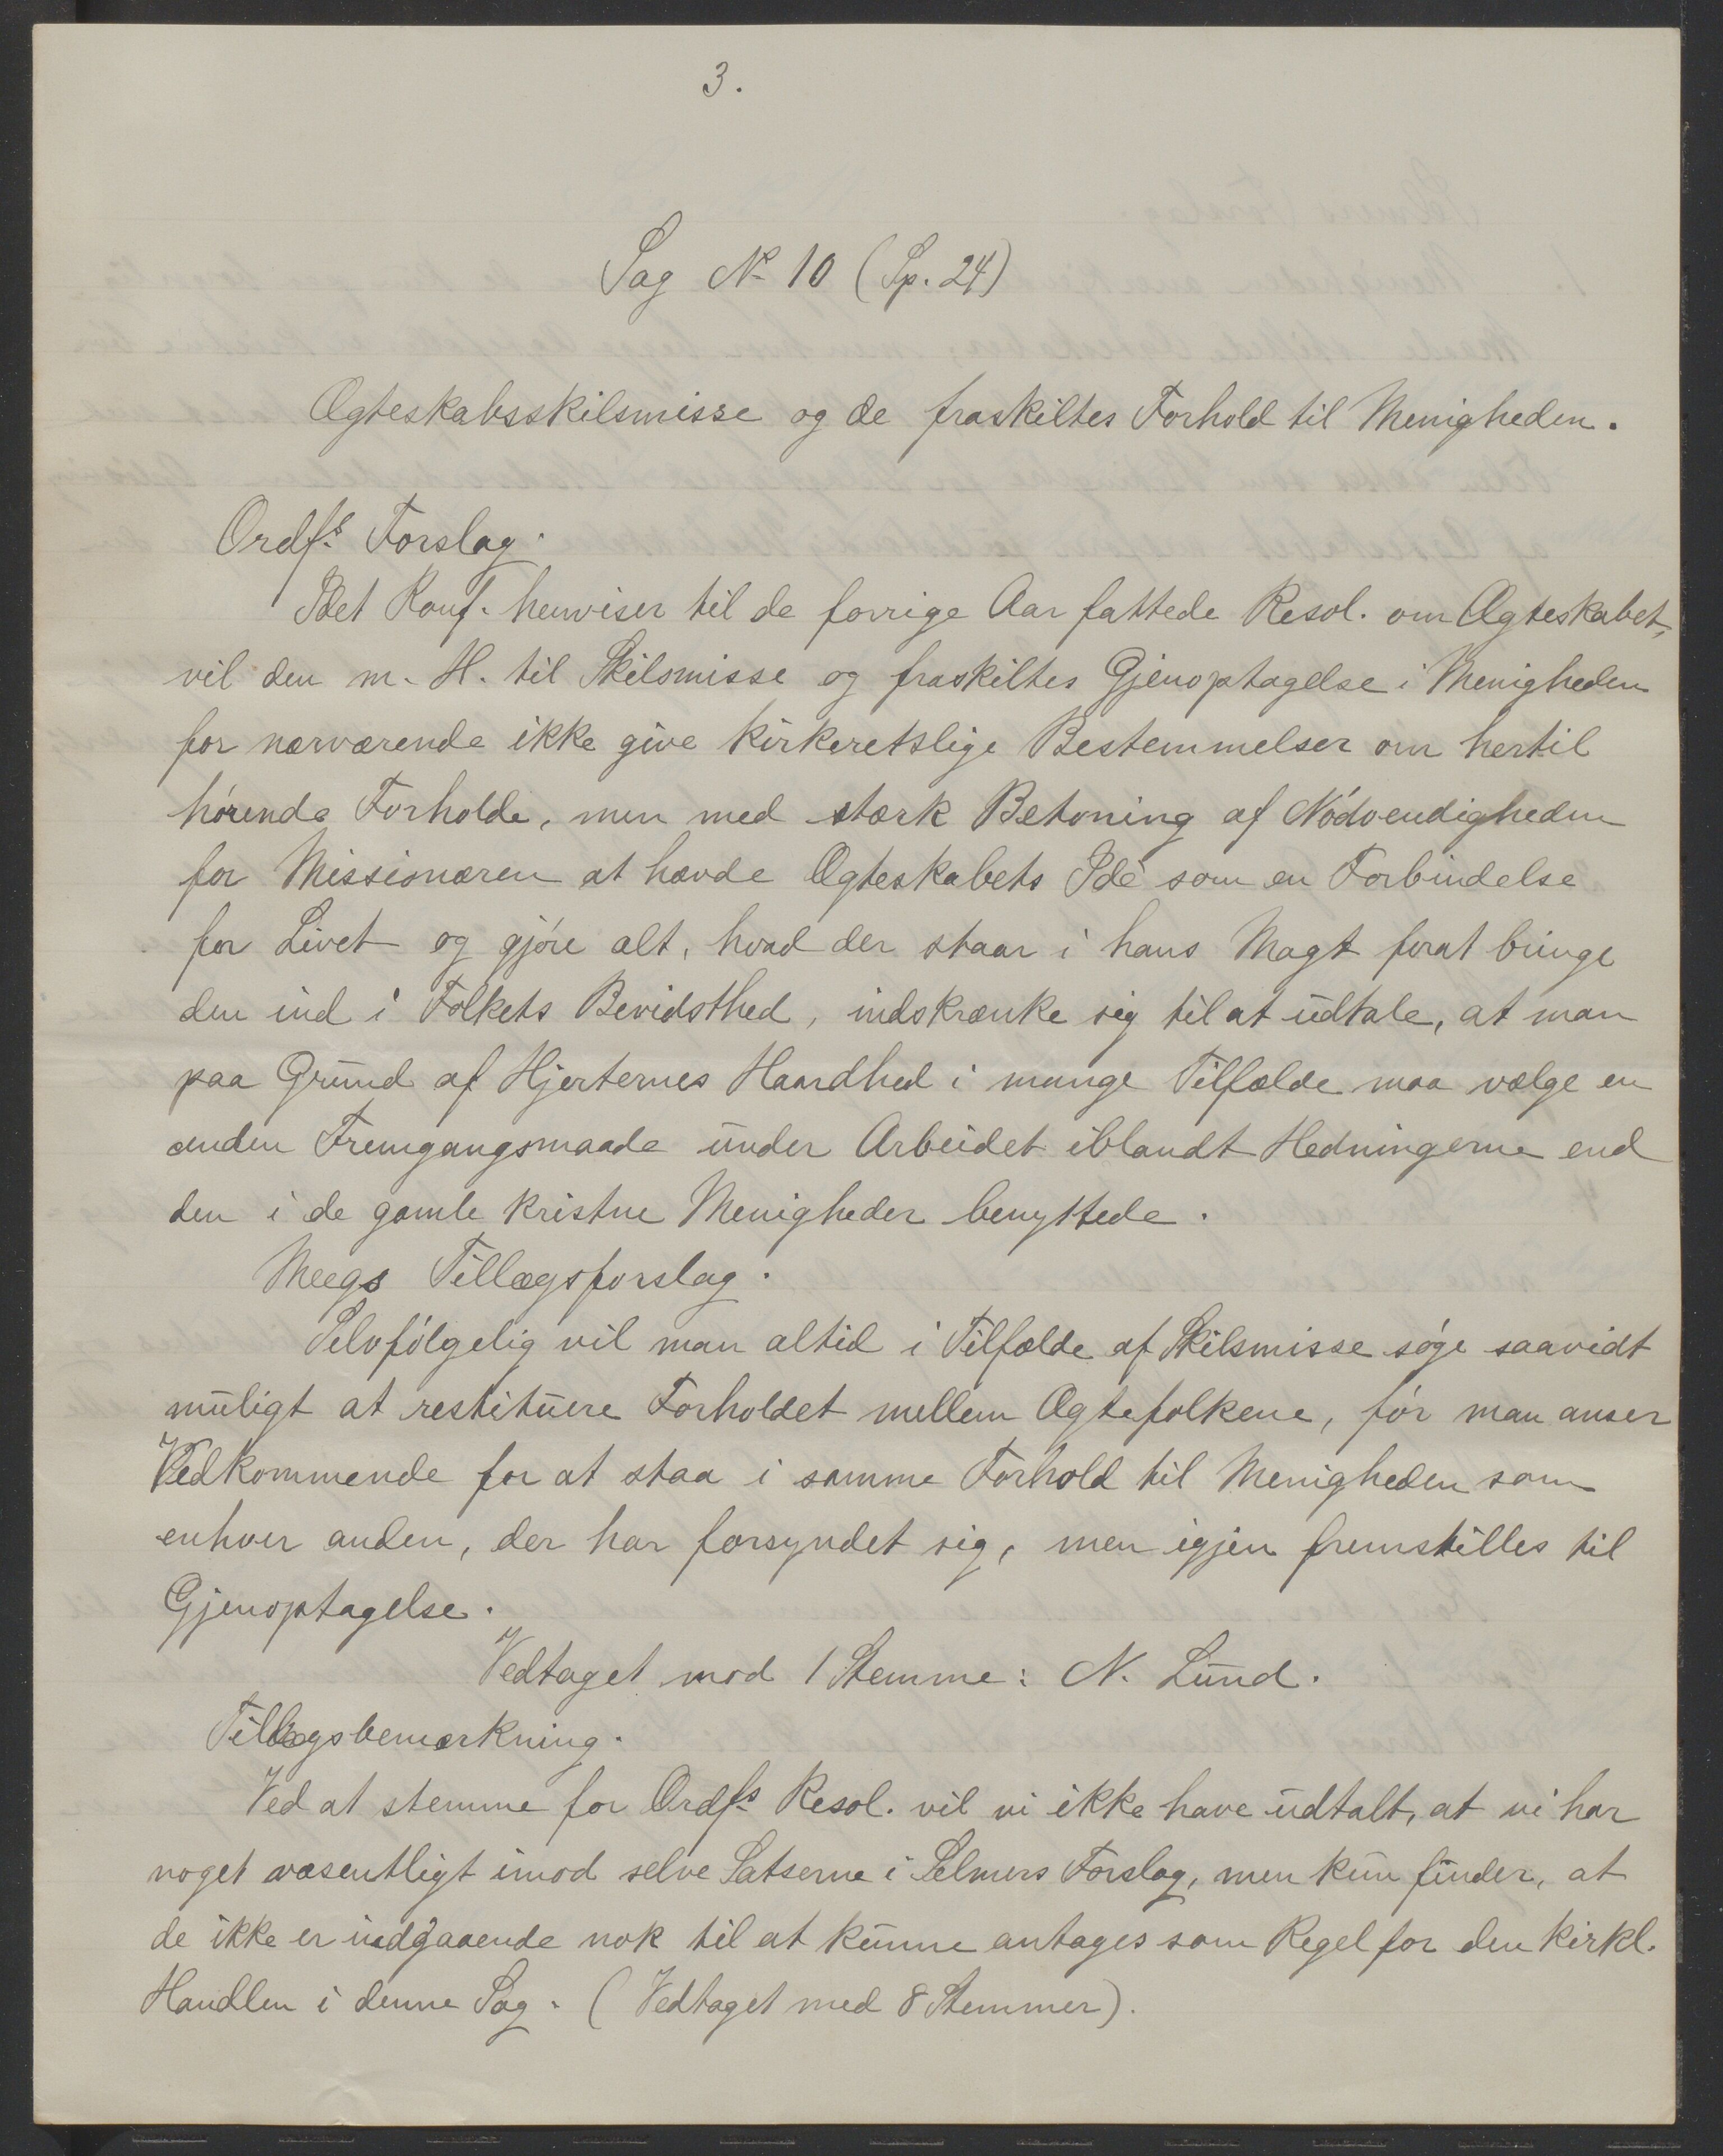 3.
Sag No 10 (Sp. 24)
Ægteskabsskilsmisse og de fraskiltes Forhold til Menigheden.
Ordfs. Forslag.
Idet Konf. henviser til de forrige Aar fattede Resol. om Ægteskabet,
vil den m. H. til Skilsmisse og fraskiltes Gjenoptagelse i Menigheden
for nærværende ikke give kirkeretslige Bestemmelser om hertil
hørende Forholde, men med stærk Betoning af Nødvendigheden
for Missionæren at hævde Ægteskabets Idé som en Forbindelse
for Livet og gjøre alt, hvad der staar i hans Magt forat bringe
den ind i Folkets Bevidsthed, indskrænke sig til at udtale, at man
paa Grund af Hjerternes Haardhed i mange Tilfælde maa vælge en
anden Fremgangsmaade under Arbeidet iblandt Hedningerne end
den i de gamle kristne Menigheder benyttede.
Meegs Tillægsforslag.
Selvfølgelig vil man altid i Tilfælde af Skilsmisse søge saavidt
muligt at restituere Forholdet mellem Ægtefolkene, før man anser
Vedkommende for at staa i samme Forhold til Menigheden som
enhver anden, der har forsyndet sig, men igjen fremstilles til
Gjenoptagelse.
Vedtaget mod 1 Stemme: N. Lund.
Tillægsbemærkning.
Ved at stemme for Ordfs. Resol. vil vi ikke have udtalt, at vi har
noget væsentligt imod selve Satserne i Selmers Forslag, men kun finder, at
de ikke er indgaaende nok til at kunne antages som Regel for den kirkl.
Handlen i denne Sag. (Vedtaget med 8 Stemmer).